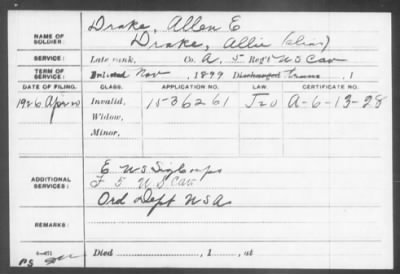 NAME OF SOLDIER: Drake, Allen E
Drake, Allie (alias)
SERVICE: Late rank, Co. A, 5 Reg't U S Cav
TERM OF SERVICE: Enlisted Nov , 1899 Discharged , 1
DATE OF FILING. CLASS. APPLICATION NO. LAW. CERTIFICATE NO.
1926 Apr 20 Invalid, 1536261 J20 A-6-13-28
Widow,
Minor,
ADDITIONAL SERVICES: E US Sig Corps
F 5 U S Cav
Ord Dept USA
REMARKS:
Died , 1 , at